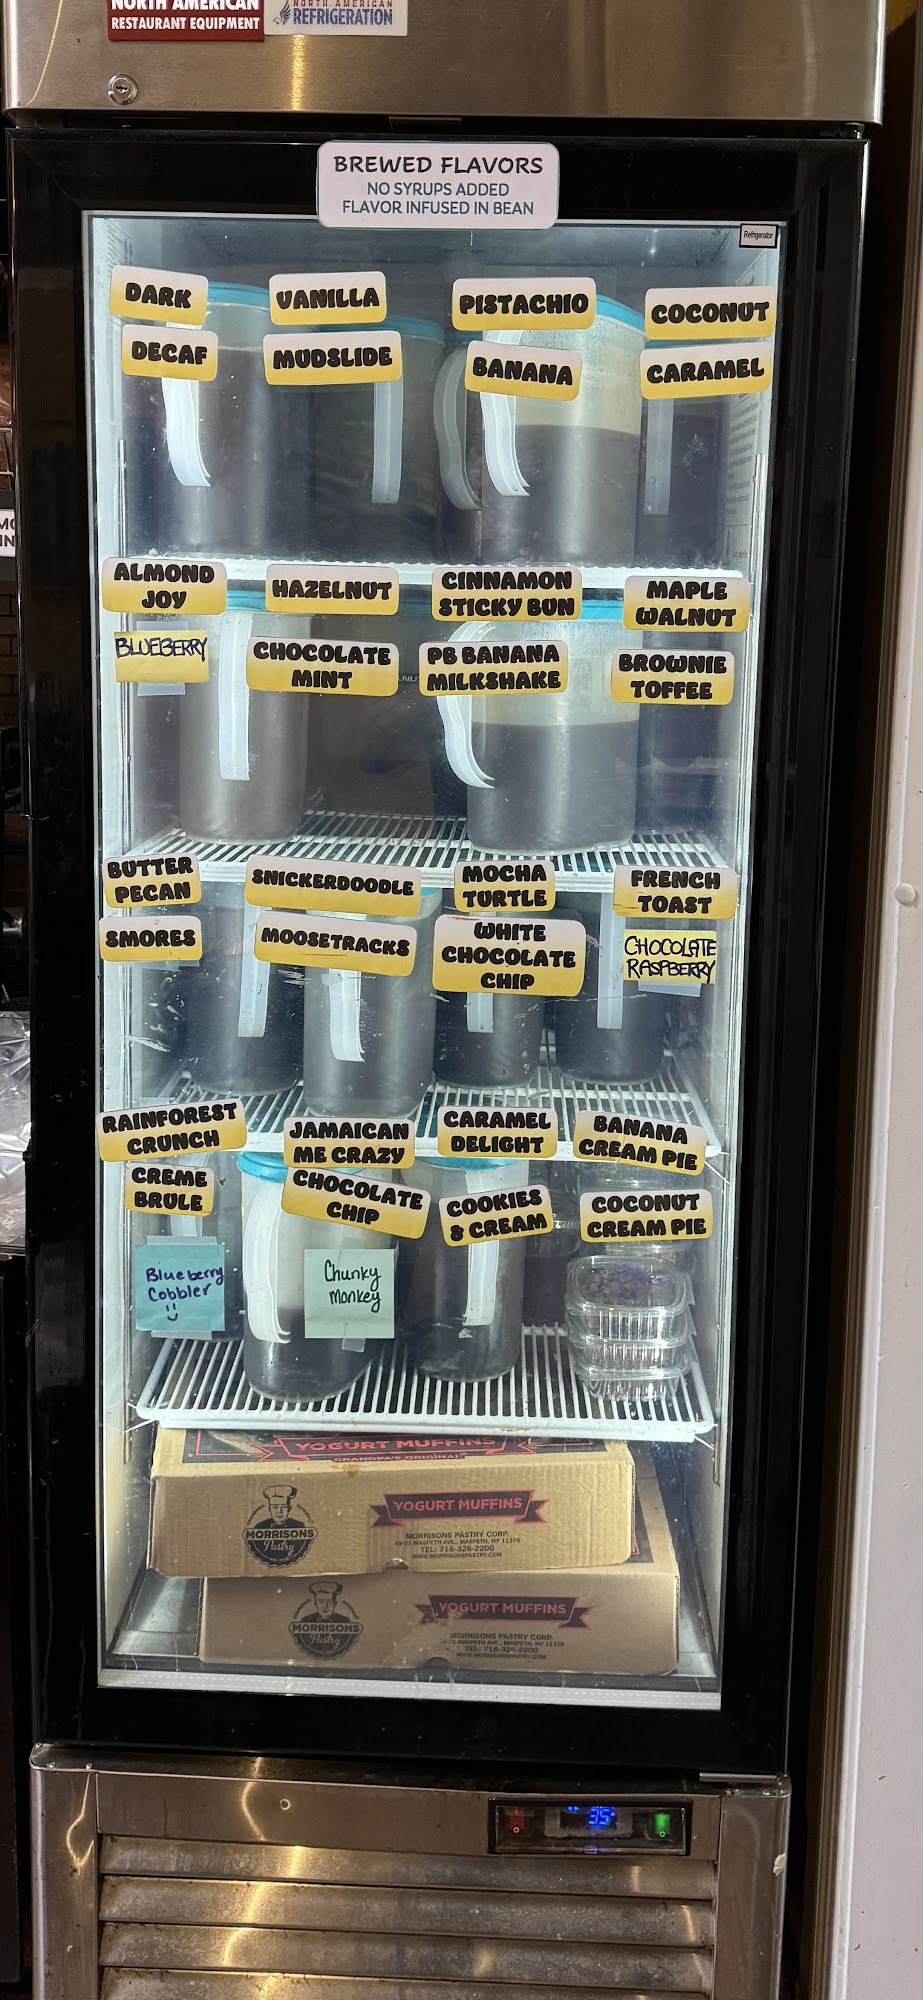 NORTH AMERICAN
RESTAURANT EQUIPMENT
NORTH AMERICAN
REFRIGERATION
BREWED FLAVORS
NO SYRUPS ADDED
FLAVOR INFUSED IN BEAN
Refrigerator
DARK
VANILLA
PISTACHIO
COCONUT
DECAF
MUDSLIDE
BANANA
CARAMEL
ALMOND
JOY
HAZELNUT
CINNAMON
STICKY BUN
MAPLE
WALNUT
BLUEBERRY
CHOCOLATE
MINT
PB BANANA
MILKSHAKE
BROWNIE
TOFFEE
BUTTER
PECAN
SNICKERDOODLE
MOCHA
TURTLE
FRENCH
TOAST
SMORES
MOOSETRACKS
WHITE
CHOCOLATE
CHIP
CHOCOLATE
RASPBERRY
RAINFOREST
CRUNCH
JAMAICAN
ME CRAZY
CARAMEL
DELIGHT
BANANA
CREAM PIE
CREME
BRULE
CHOCOLATE
CHIP
COOKIES
& CREAM
COCONUT
CREAM PIE
Blueberry
Cobbler
Chunky
Monkey
YOGURT MUFFINS
GRANDPA'S ORIGINAL
MORRISONS
Pastry
YOGURT MUFFINS
MORRISONS PASTRY CORP.
69-01 MASPETH AVE., MASPETH, NY 11378
TEL: 718-326-2200
WWW.MORRISONSPASTRY.COM
MORRISONS
Pastry
YOGURT MUFFINS
MORRISONS PASTRY CORP.
MASPETH AVE., MASPETH, NY 11378
TEL: 718-326-2200
WWW.MORRISONSPASTRY.COM
35°